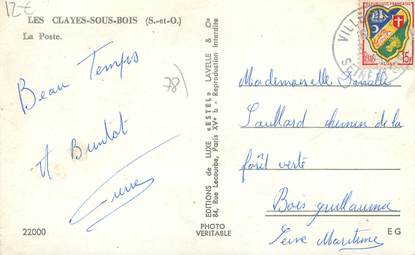 12€
LES CLAYES-SOUS-BOIS (S.-et-O.)
La Poste.
78)
Beau Temps
A Bientot
22000
EDITIONS de LUXE "ESTEL" LAVELLE & Cie
84, Rue Lecourbe, Paris XVe b - Reproduction interdite
PHOTO
VERITABLE
15F
Mademoiselle
chemin de la
forêt verte
Bois guillaume
Seine Maritime
E G